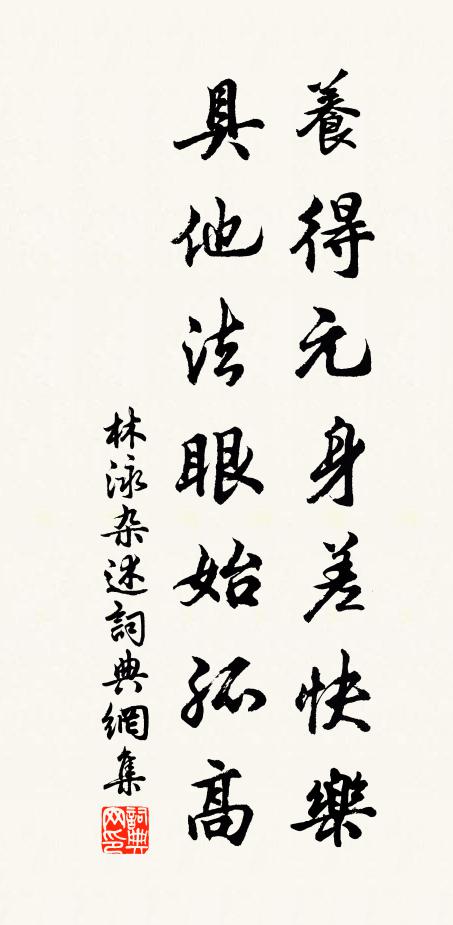 養得元身差快樂
具他法眼始孤高
林泳杂述詞典網集
詞典网印